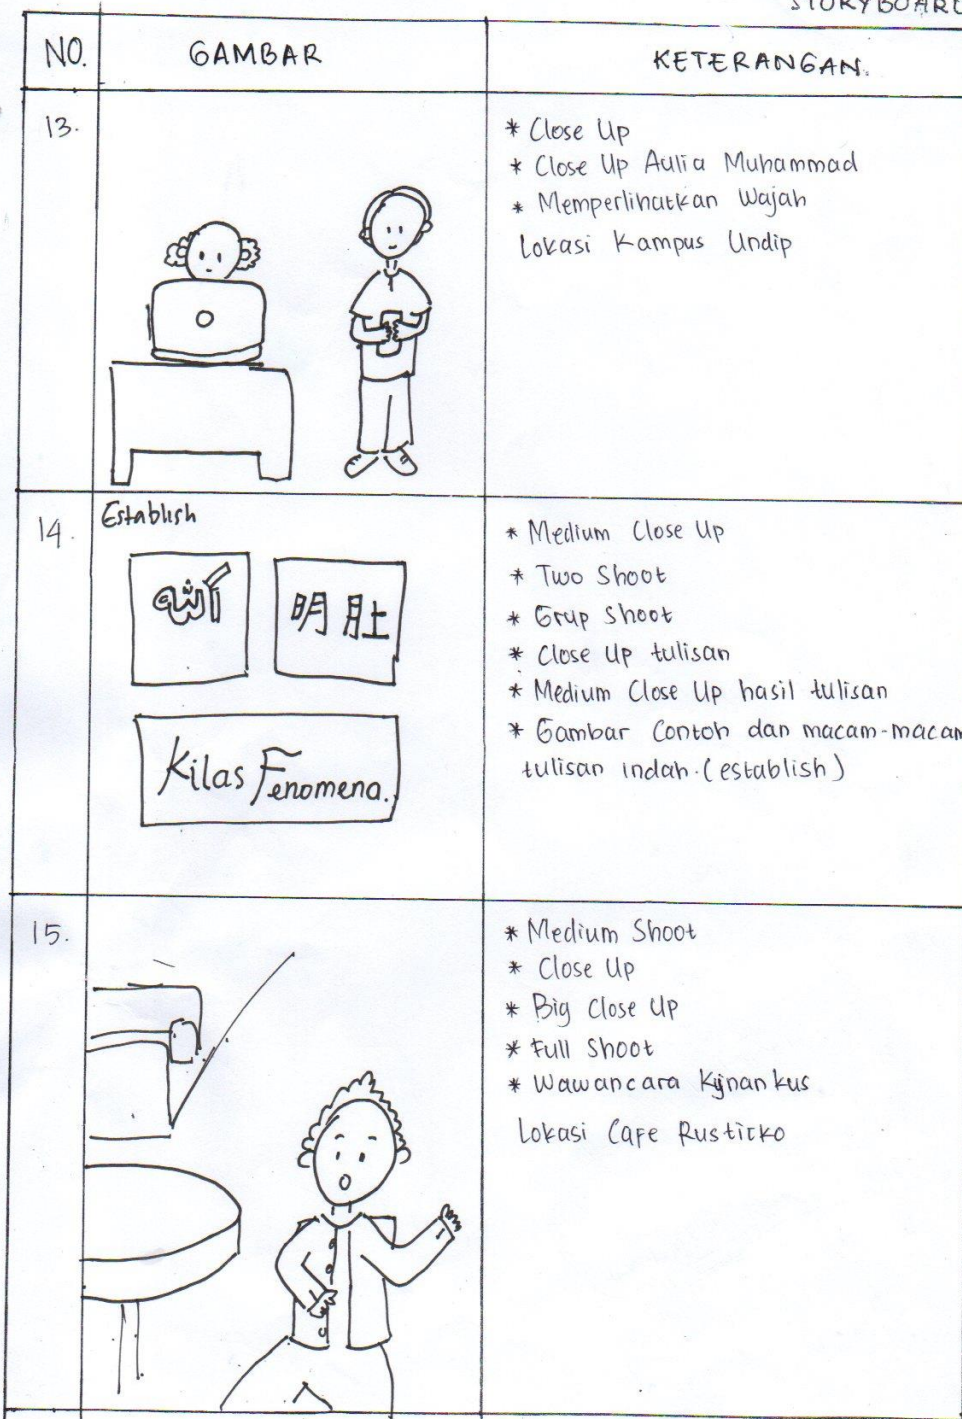 STORYBOARD
NO.
GAMBAR
KETERANGAN.
13.
* Close Up
* Close Up Aulia Muhammad
* Memperlihatkan Wajah
Lokasi Kampus Undip
14.
Establish
الله
明 肚
Kilas Fenomena.
* Medium Close Up
* Two Shoot
* Grup Shoot
* Close Up tulisan
* Medium Close Up hasil tulisan
* Gambar Contoh dan macam-macam
tulisan indah. (establish)
15.
* Medium Shoot
* Close Up
* Big Close Up
* Full Shoot
* Wawancara kus
Lokasi Cafe Rusticko